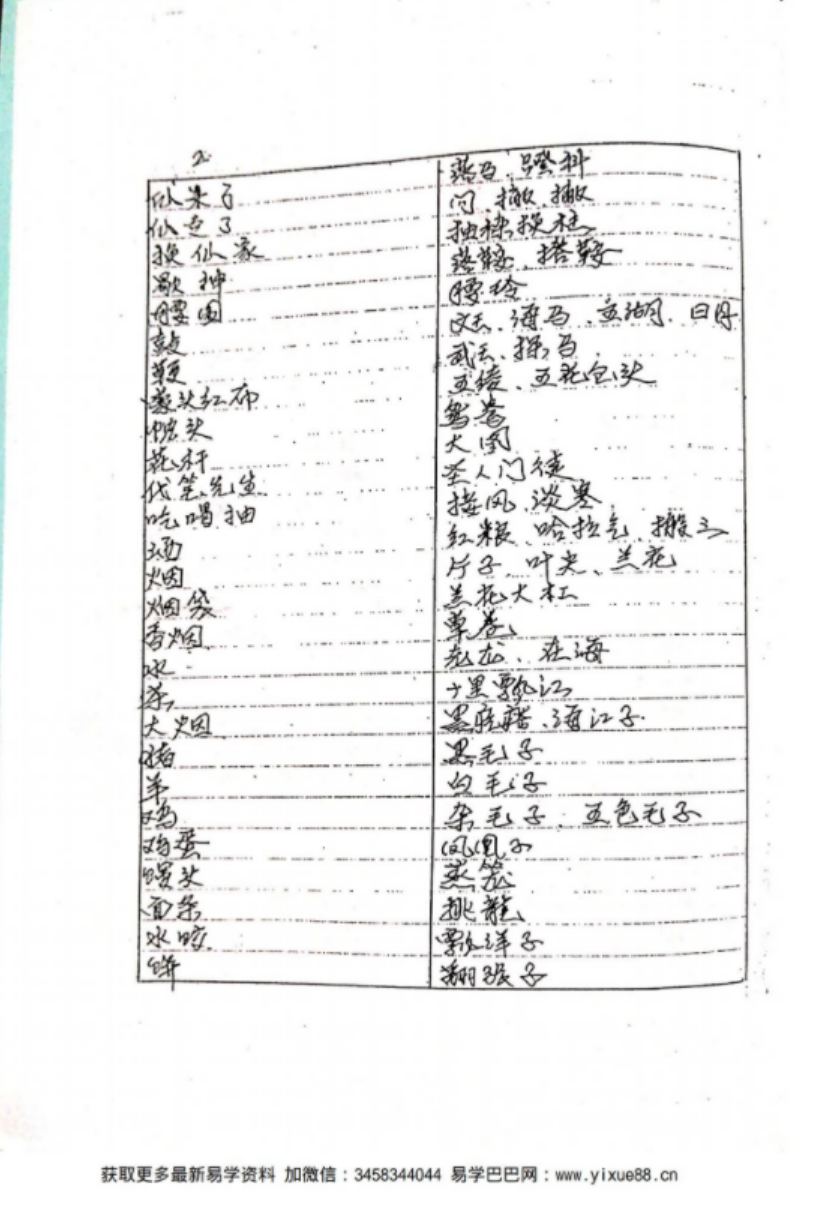 2.
仙来了 落马、蹬科
仙走了 问、撤、撤
换仙家 抽梁换柱
歇神 落鞍、搭鞍
腰圈 腰玲
鼓 文王、海马、日月
鞭 武王、探马
蒙头红布 五绫、五花包头
枕头 鸳鸯
花杆 大图
代笔先生 圣人门徒
吃喝抽 接风、淡寒
酒 红粮、哈拉气、搬三
烟 片子、叶尖、兰花
烟袋 兰花大杠
香烟 草卷
水 老龙、在海
茶 十里飘江
大烟 海江子
猪 黑毛子
羊 白毛子
鸡 杂毛子、五色毛子
鸡蛋 凤凰子
馒头 蒸笼
面条 挑龍
水饺 飘洋子
饼 翻张子
获取更多最新易学资料 加微信：3458344044 易学巴巴网：www.yixue88.cn